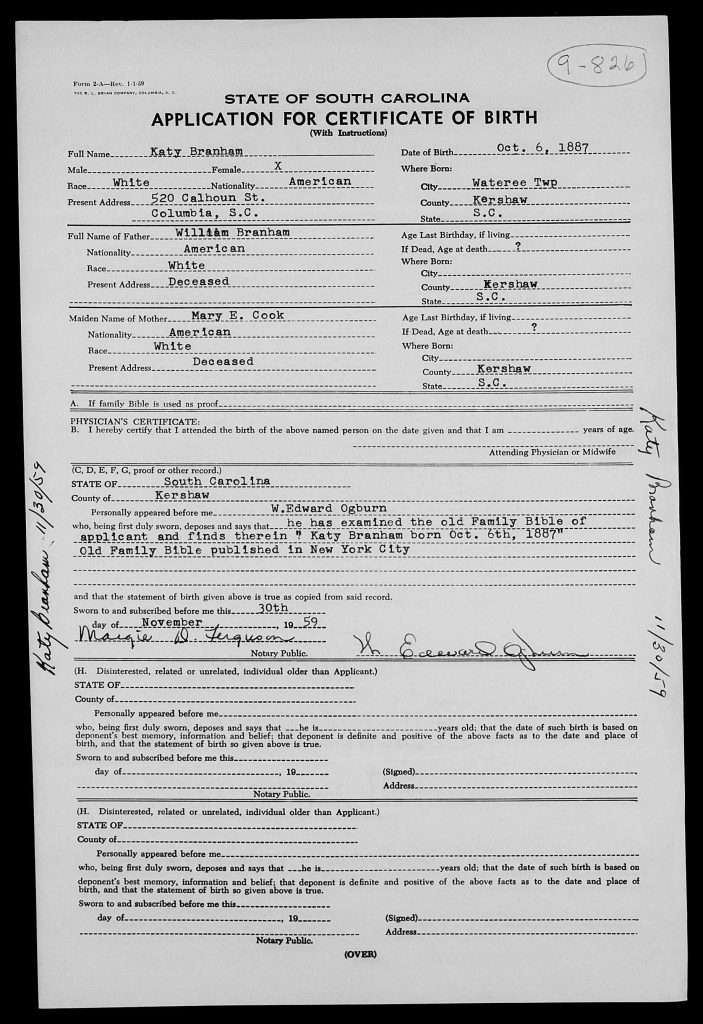 9-826
Form 2-A—Rev. 1-1-59
THE R. L. BRYAN COMPANY, COLUMBIA, S. C.
STATE OF SOUTH CAROLINA
APPLICATION FOR CERTIFICATE OF BIRTH
(With Instructions)
Full Name Katy Branham
Male Female X
Race White Nationality American
Present Address 520 Calhoun St.
Columbia, S.C.
Date of Birth Oct. 6, 1887
Where Born:
City Wateree Twp
County Kershaw
State S.C.
Full Name of Father William Branham
Nationality American
Race White
Present Address Deceased
Age Last Birthday, if living
If Dead, Age at death ?
Where Born:
City
County Kershaw
State S.C.
Maiden Name of Mother Mary E. Cook
Nationality American
Race White
Present Address Deceased
Age Last Birthday, if living
If Dead, Age at death ?
Where Born:
City
County Kershaw
State S.C.
A. If family Bible is used as proof
PHYSICIAN'S CERTIFICATE:
B. I hereby certify that I attended the birth of the above named person on the date given and that I am years of age.
Attending Physician or Midwife
(C, D, E, F, G, proof or other record.)
STATE OF South Carolina
County of Kershaw
Personally appeared before me W.Edward Ogburn
who, being first duly sworn, deposes and says that he has examined the old Family Bible of
applicant and finds therein " Katy Branham born Oct. 6th, 1887"
Old Family Bible published in New York City
and that the statement of birth given above is true as copied from said record.
Sworn to and subscribed before me this 30th
day of November, 19 59
Margie D. Ferguson
Notary Public.
W. Edward Ogburn
(H. Disinterested, related or unrelated, individual older than Applicant.)
STATE OF
County of
Personally appeared before me
who, being first duly sworn, deposes and says that he is years old; that the date of such birth is based on
deponent's best memory, information and belief; that deponent is definite and positive of the above facts as to the date and place of
birth, and that the statement of birth so given above is true.
Sworn to and subscribed before me this
day of , 19
(Signed)
Address
Notary Public.
(H. Disinterested, related or unrelated, individual older than Applicant.)
STATE OF
County of
Personally appeared before me
who, being first duly sworn, deposes and says that he is years old; that the date of such birth is based on
deponent's best memory, information and belief; that deponent is definite and positive of the above facts as to the date and place of
birth, and that the statement of birth so given above is true.
Sworn to and subscribed before me this
day of , 19
(Signed)
Address
Notary Public.
(OVER)
Katy Branham - 11/30/59
Katy Branham 11/30/59